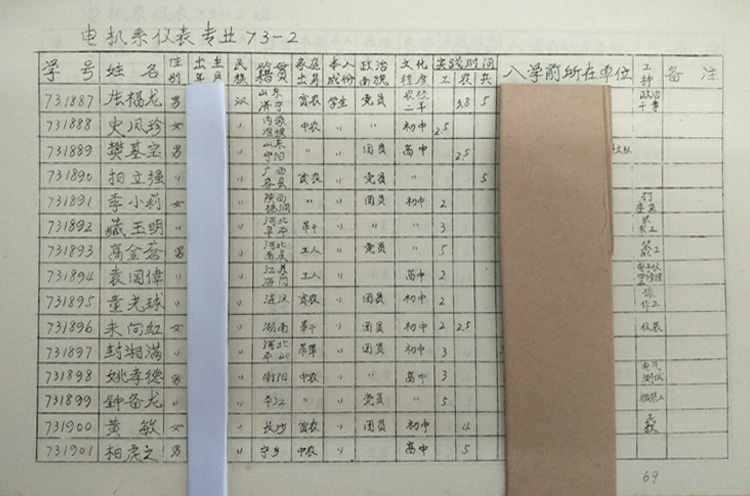 电机系仪表专业73-2
学号 姓名 性别 出生年月 民族 籍贯 家庭出身 本人成份 政治面貌 文化程度 实践时间 工 农 兵 入学前所在单位 工种 备注
731887 男 汉 山东济宁 贫农 学生 党员 二年 3.8 5 政治干事
731888 史凤珍 女 〃 内蒙 中农 〃 〃 初中 2.5
731889 樊基宝 男 〃 山东宁阳 〃 团员 高中 2.5 大队
731890 柏立强 〃 〃 广西 贫农 〃 党员 〃 5
731891 李小莉 女 〃 陕西 〃 团员 初中 2
731892 臧玉明 〃 〃 河北阜平 革干 〃 〃 3
731893 高金苍 男 〃 河北 工人 〃 党员 〃 5
731894 袁国伟 〃 〃 工人 〃 高中 2
731895 童光球 〃 〃 贫农 〃 团员 初中 2
731896 朱向红 女 〃 湖南 革干 〃 团员 初中 2 2.5 仪表
731897 封湘满 〃 〃 河北 〃 团员 初中 3
731898 姚孝德 男 〃 衡阳 中农 〃 〃 高中 3 电气测试
731899 钟备龙 〃 〃 平江 〃 〃 党员 〃 5
731900 黄敏 女 〃 长沙 贫农 〃 团员 初中 4
731901 柏虎之 男 〃 宁乡 中农 〃 高中 5
69